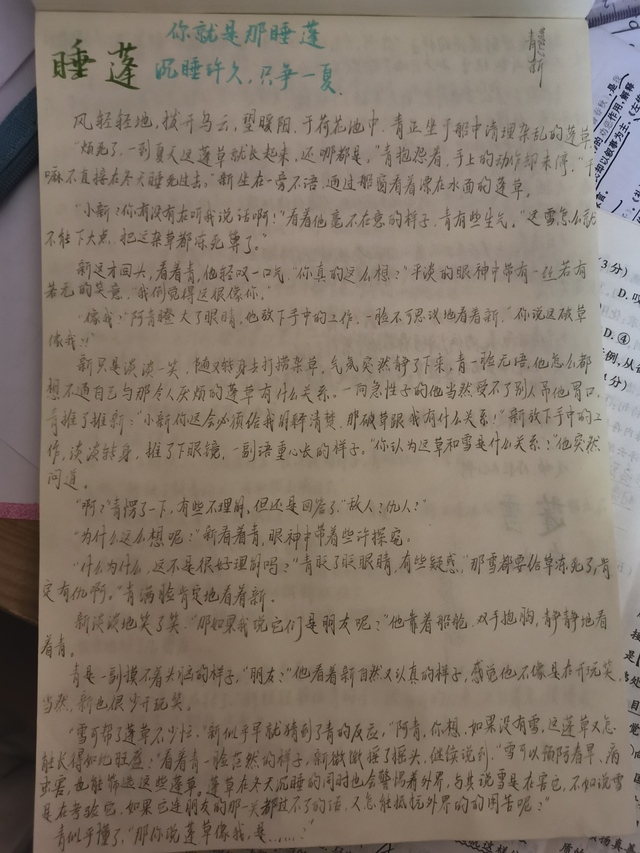 睡蓬
你就是那睡蓬
沉睡许久,只争一夏.
风轻轻地,拨开乌云,望暖阳,于荷花池中,青正坐于船中清理杂乱的蓬草,
"烦死了,一到夏天这蓬草就长起来,还哪都是,"青抱怨着,手上的动作却未停,"干
嘛不直接在冬天睡死过去,"新坐在一旁不语,通过船窗看着漂在水面的蓬草。
"小新?你有没有在听我说话啊!"看着他毫不在意的样子,青有些生气。"这雪怎么就
不能下大点,把这杂草都冻死算了。"
新这才回头,看着青,他轻叹一口气,"你真的这么想?"平淡的眼神中带有一丝若有
若无的笑意,"我倒觉得这很像你."
"像我?"阿青瞪大了眼睛,他放下手中的工作,一脸不可思议地看着新,"你说这破草
像我?!"
新只是淡淡一笑,随又转身去打捞杂草,气氛突然静了下来,青一脸无语,他怎么都
想不通自己与那令人厌烦的蓬草有什么关系。一向急性子的他当然受不了别人吊他胃口,
青推了推新:"小新你这会必须给我解释清楚,那破草跟我有什么关系!"新放下手中的工
作,淡淡转身,推了下眼镜,一副语重心长的样子,"你认为这草和雪是什么关系?"他突然
问道。
"啊?"青愣了一下,有些不理解,但还是回答了,"敌人?仇人?"
"为什么这么想呢?"新看着青,眼神中带着些许探究,
"什么为什么,这不是很好理解吗?"青眨了眨眼睛,有些疑惑,"那雪都要给草冻死了,肯
定有仇啊。"青满脸肯定地看着新.
新淡淡地笑了笑,"那如果我说它们是朋友呢?"他靠着船舱,双手抱胸,静静地看
着青。
青是一副摸不着头脑的样子,"朋友?"他看着新自然又认真的样子,感觉他不像是在开玩笑,
当然,新也很少开玩笑。
"雪可帮了蓬草不少忙,"新似乎早就猜到了青的反应,"阿青,你想,如果没有雪,这蓬草又怎
能长得如此旺盛?"看着青一脸茫然的样子,新微微摇了摇头,继续说到,"雪可以预防春旱,病
虫害,也能筛选这些蓬草。蓬草在冬天沉睡的同时也会警惕着外界,与其说雪是在害它,不如说雪
是在考验它,如果它连朋友的那一关都过不了的话,又怎能抵抗外界的的困苦呢?"
青似乎懂了,"那你说蓬草像我,是……?"